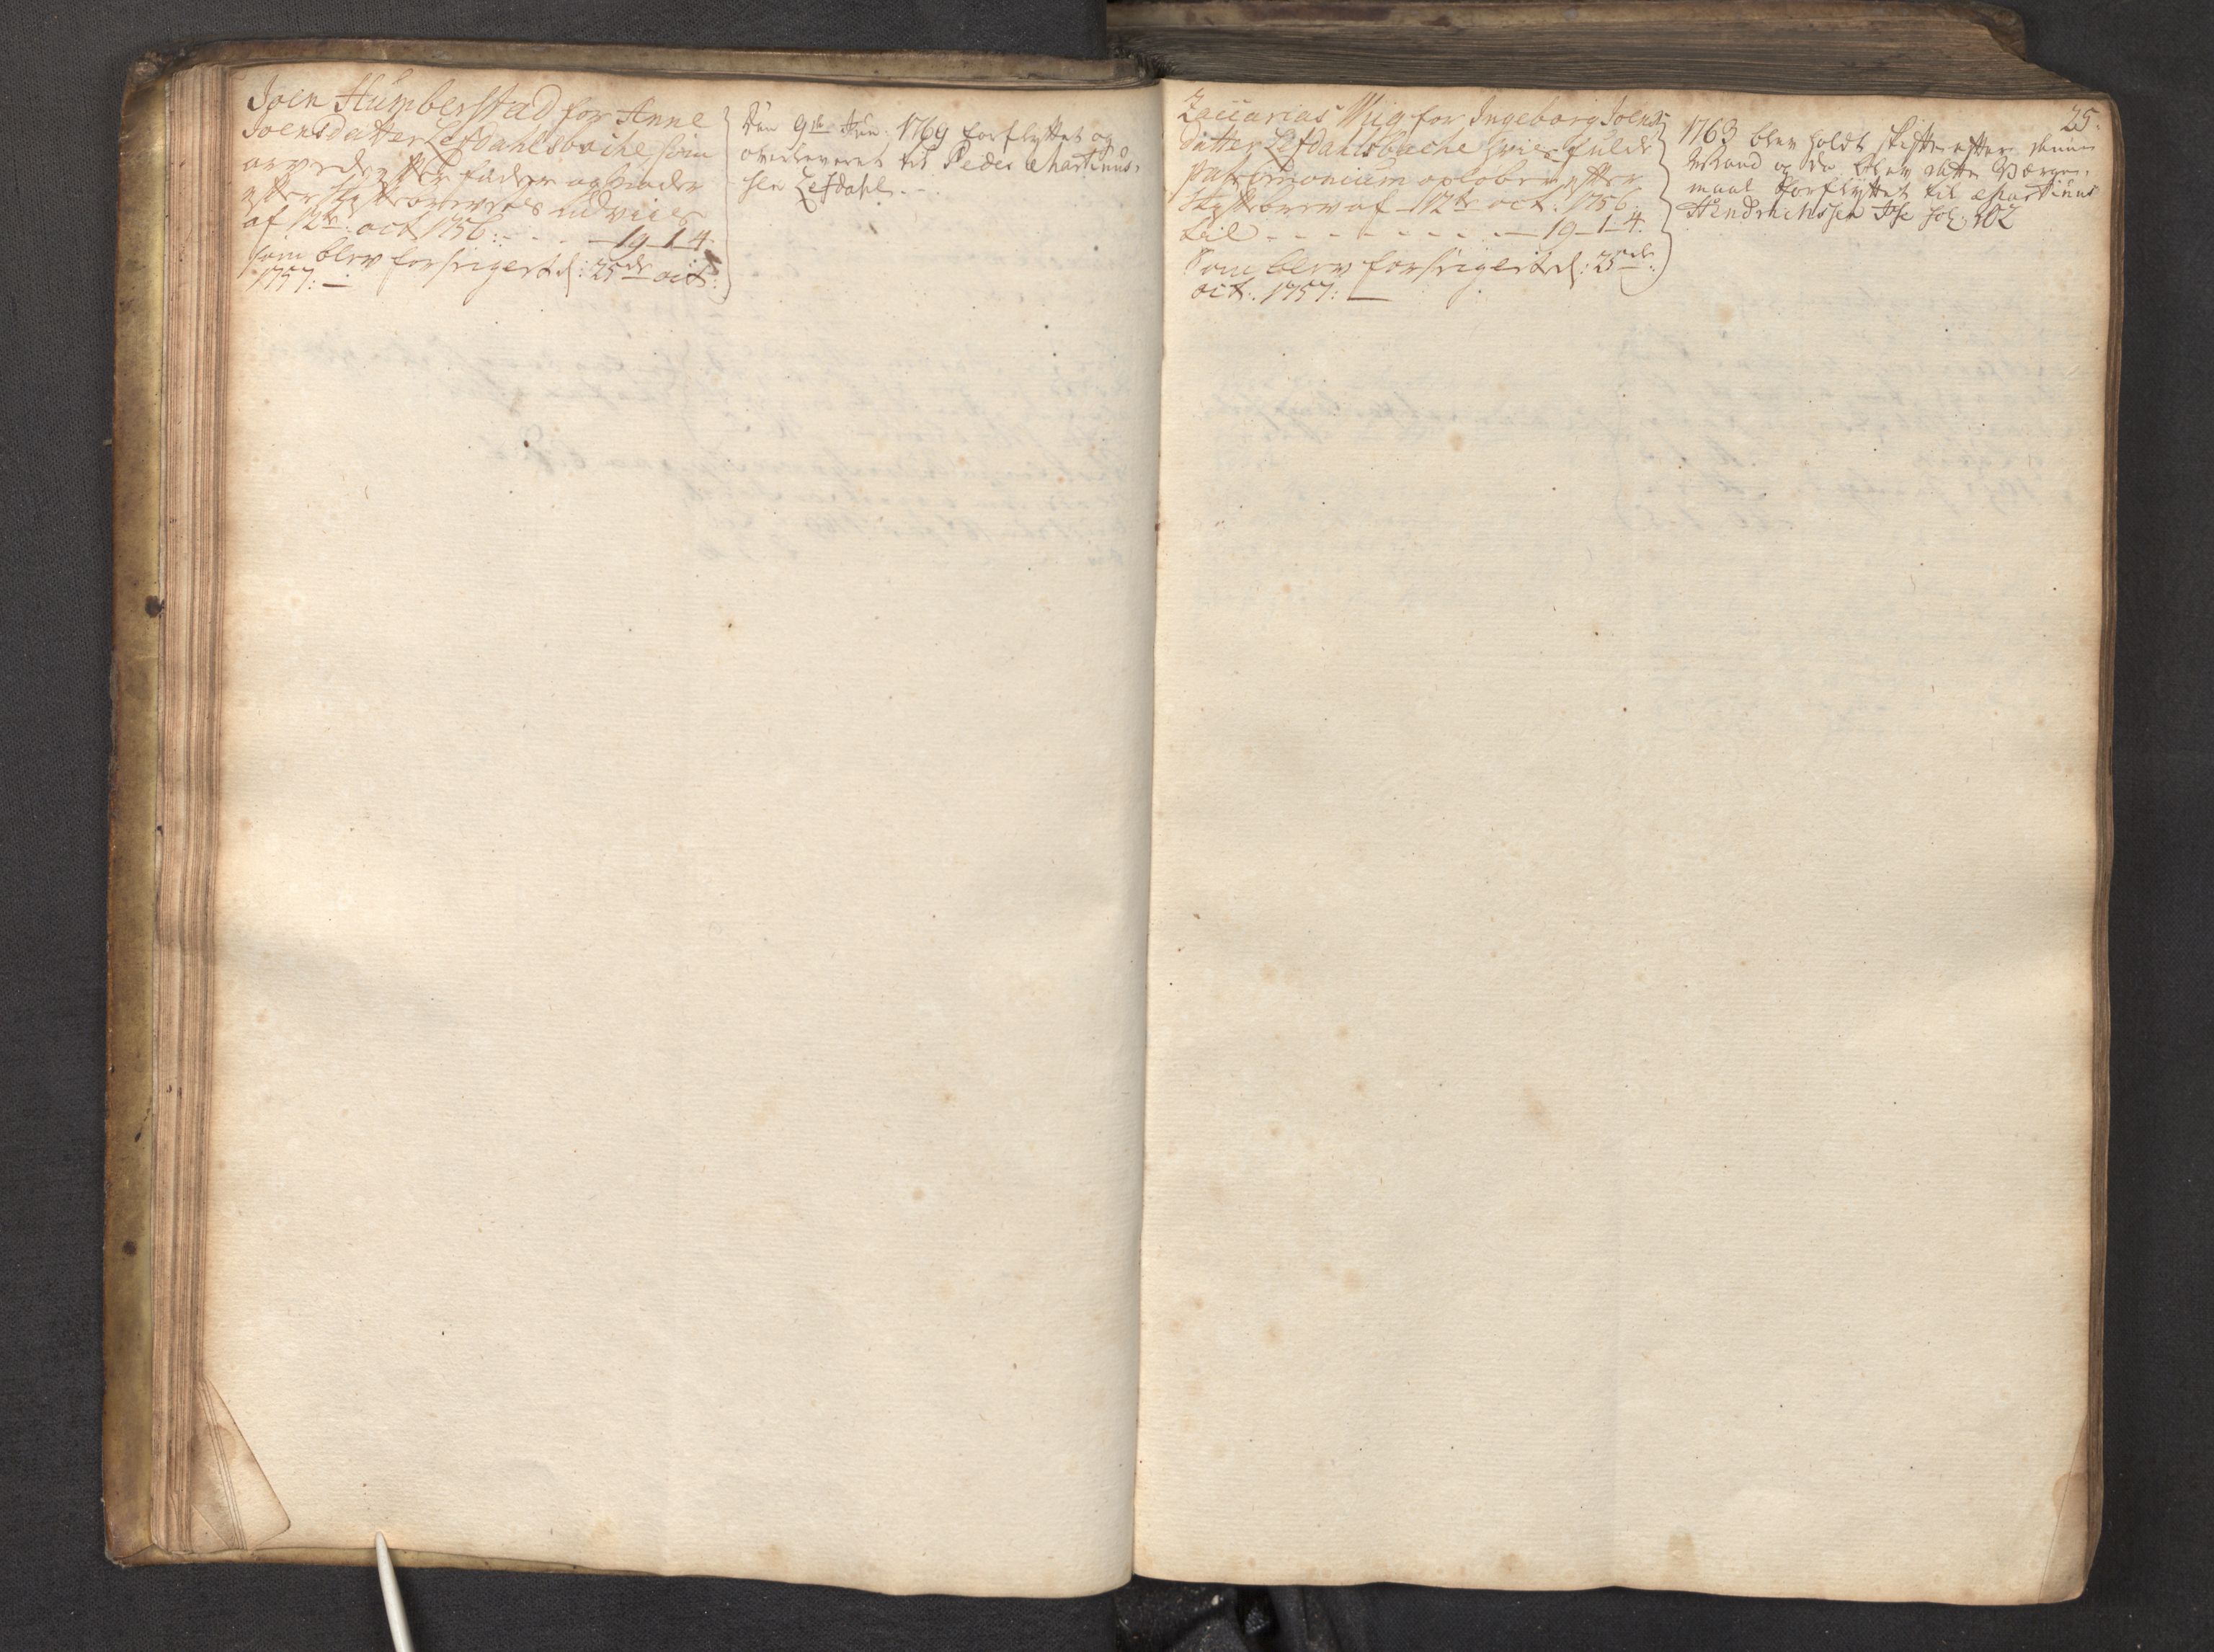 Joen Humberstad for Anne
Joensdatter Lefdahlsbache som
arvede efter fader og moder
efter skiftebrevets udviis
af 12te: oct 1756: - - - 19-1-4.
som blev forsigert d: 25de oct:
1757: —
Den 9de Jun: 1769 forflyttet og
overleveret til Peder Martinus-
sen Lefdahl. - -
25.
Zacarias Wiig for Ingeborg Joens
datter Lefdahlsbache hvis fulde
patrimonium opløber efter
skiftebrev af 12te oct: 1756.
til - - - - - - - 19-1-4.
Som blev forsigert d: 25de:
oct: 1757: —
1763 blev holdt skifte efter denne
Mand og da blev dette Værge-
maal forflyttet til Martinus
Hendrichssen fol: 102